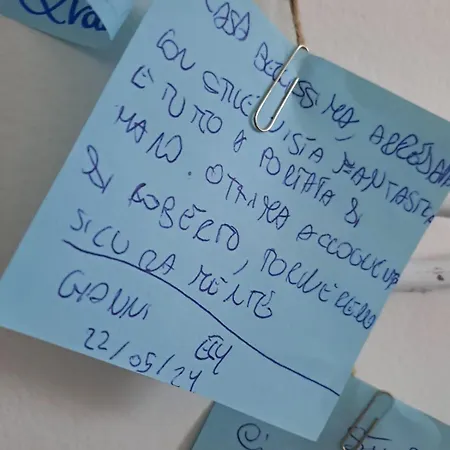 CASA BELLISSIMA, ARREDATA
CON STILE VISTA FANTASTICA
E TUTTO A PORTATA DI
MANO OTTIMA ACCOGLIENZA
DI ROBERTO, TORNEREMO
SICURAMENTE
GIANNI
22/05/24